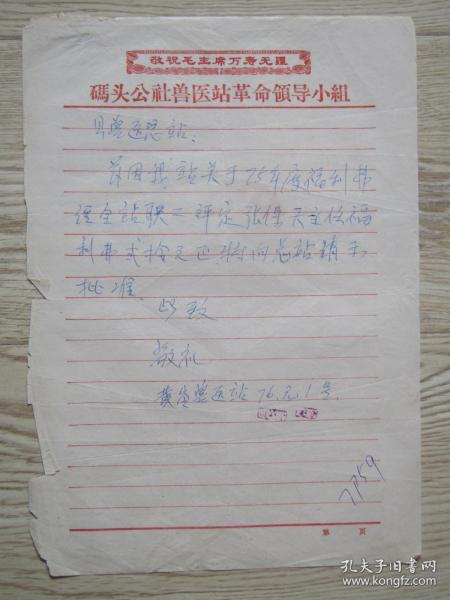 敬祝毛主席万寿无疆
碼头公社兽医站革命领导小组
县兽医总站:
兹因我站关于75年度福利费
经全站联工评定张保天主任福
利费弍拾元正,特向总站请示
批准.
此致
敬礼
黄 兽医站 76.元.1号.
7759
第 页
孔夫子旧书网
www.kongfz.com